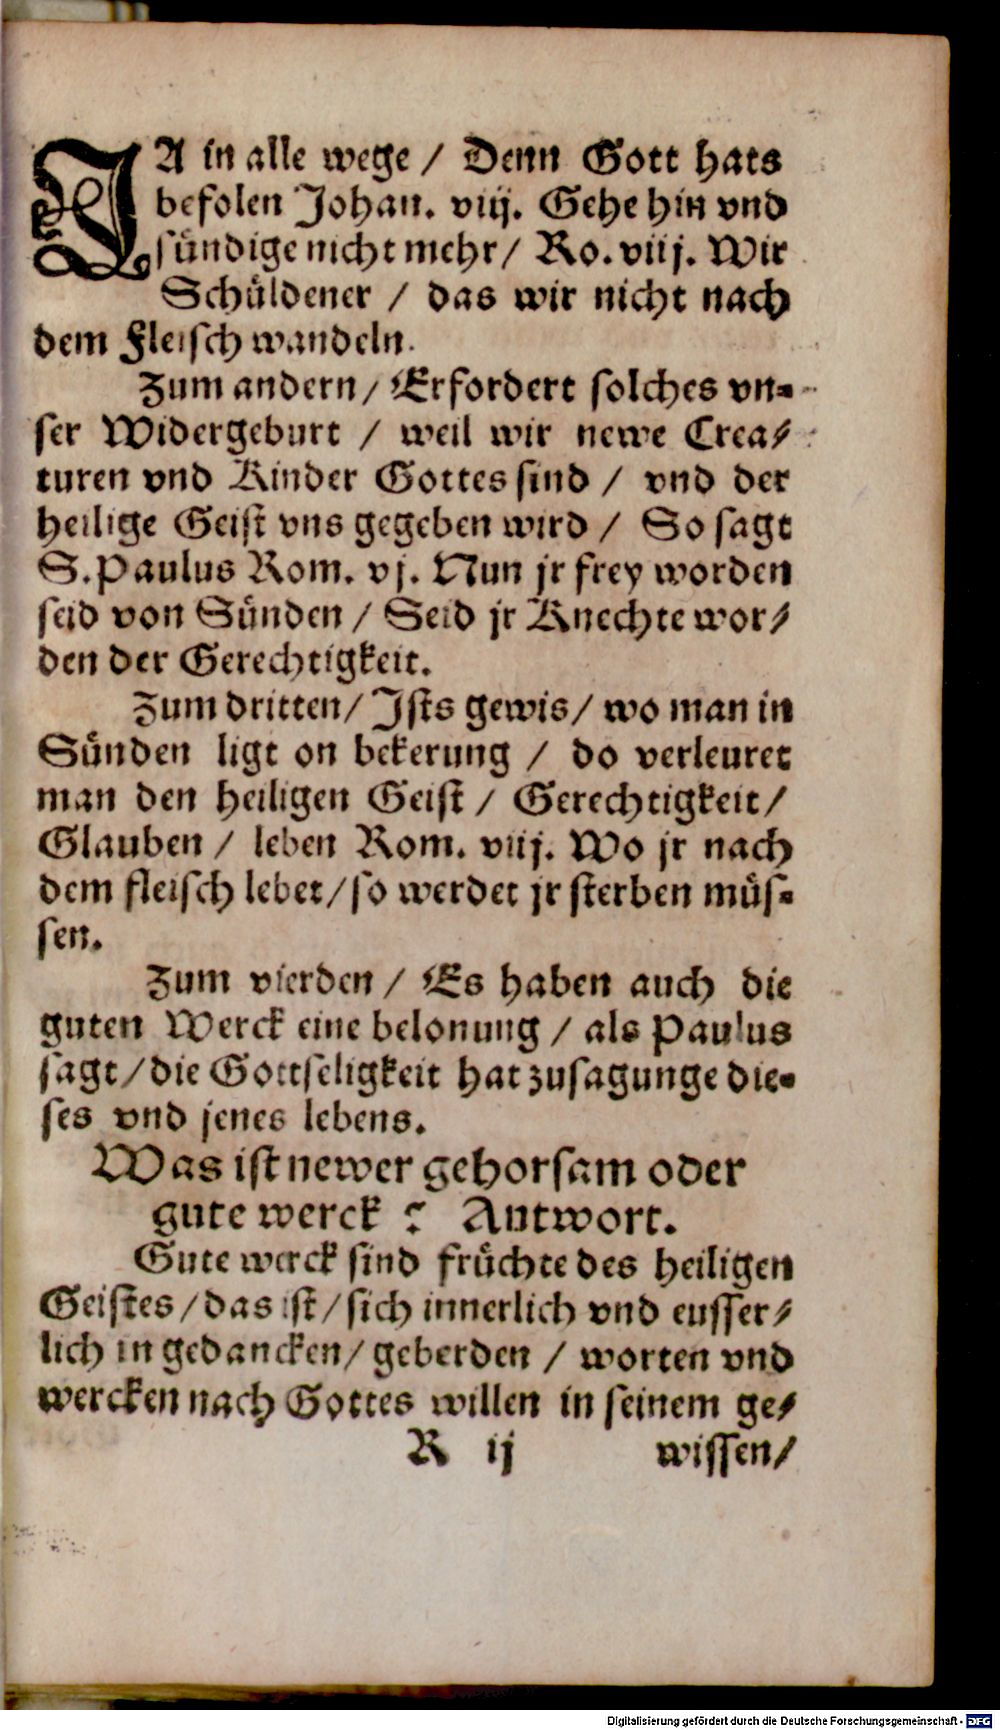 JA in alle wege / Denn Gott hats
befolen Johan. viij. Gehe hin vnd
sündige nicht mehr / Ro. viij. Wir
Schüldener / das wir nicht nach
dem Fleisch wandeln.
Zum andern / Erfordert solches vn-
ser Widergeburt / weil wir newe Crea-
turen vnd Kinder Gottes sind / vnd der
heilige Geist vns gegeben wird / So sagt
S. Paulus Rom. vj. Nun jr frey worden
seid von Sünden / Seid jr Knechte wor-
den der Gerechtigkeit.
Zum dritten / Ists gewis / wo man in
Sünden ligt on bekerung / do verleuret
man den heiligen Geist / Gerechtigkeit /
Glauben / leben Rom. viij. Wo jr nach
dem fleisch lebet / so werdet jr sterben müs-
sen.
Zum vierden / Es haben auch die
guten Werck eine belonung / als Paulus
sagt / die Gottseligkeit hat zusagunge die-
ses vnd jenes lebens.
Was ist newer gehorsam oder
gute werck? Antwort.
Gute werck sind früchte des heiligen
Geistes / das ist / sich innerlich vnd eusser-
lich in gedancken / geberden / worten vnd
wercken nach Gottes willen in seinem ge-
R ij wissen /
Digitalisierung gefördert durch die Deutsche Forschungsgemeinschaft - DFG